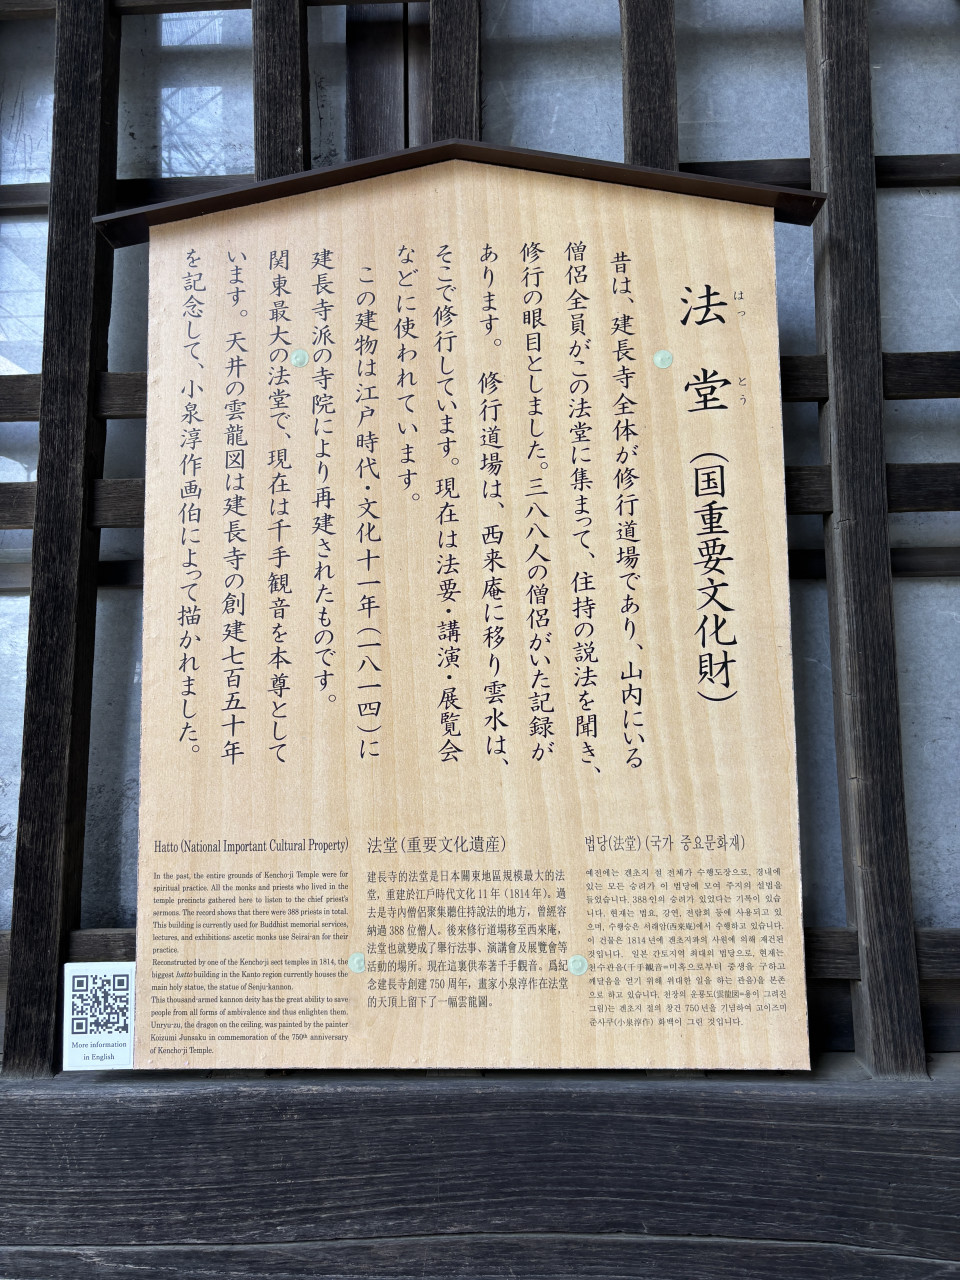 法堂(国重要文化財)
はっとう
昔は、建長寺全体が修行道場であり、山内にいる
僧侶全員がこの法堂に集まって、住持の説法を聞き、
修行の眼目としました。三八八人の僧侶がいた記録が
あります。 修行道場は、西来庵に移り雲水は、
そこで修行しています。現在は法要・講演・展覧会
などに使われています。
この建物は江戸時代・文化十一年(一八一四)に
建長寺派の寺院により再建されたものです。
関東最大の法堂で、現在は千手観音を本尊として
います。天井の雲龍図は建長寺の創建七百五十年
を記念して、小泉淳作画伯によって描かれました。
Hatto (National Important Cultural Property)
In the past, the entire grounds of Kencho-ji Temple were for
spiritual practice. All the monks and priests who lived in the
temple precincts gathered here to listen to the chief priest's
sermons. The record shows that there were 388 priests in total.
This building is currently used for Buddhist memorial services,
lectures, and exhibitions: ascetic monks use Seirai-an for their
practice.
Reconstructed by one of the Kencho-ji sect temples in 1814, the
biggest hatto building in the Kanto region currently houses the
main holy statue, the statue of Senju-kannon.
This thousand-armed kannon deity has the great ability to save
people from all forms of ambivalence and thus enlighten them.
Unryu-zu, the dragon on the ceiling, was painted by the painter
Koizumi Junsaku in commemoration of the 750th anniversary
of Kencho-ji Temple.
法堂(重要文化遺産)
建長寺的法堂是日本關東地區規模最大的法
堂，重建於江戶時代文化11年(1814年)。過
去是寺內僧侶聚集聽住持說法的地方，曾經容
納過388位僧人。後來修行道場移至西來庵，
法堂也就變成了舉行法事、演講會及展覽會等
活動的場所。現在這裏供奉著千手觀音。爲紀
念建長寺創建750周年，畫家小泉淳作在法堂
的天頂上留下了一幅雲龍圖。
법당(法堂) (국가 중요문화재)
예전에는 겐초지 절 전체가 수행도장으로, 경내에
있는 모든 승려가 이 법당에 모여 주지의 설법을
들었습니다. 388인의 승려가 있었다는 기록이 있습
니다. 현재는 법요, 강연, 전람회 등에 사용되고 있
으며, 수행승은 서래암(西來庵)에서 수행하고 있습니다.
이 건물은 1814년에 겐초지파의 사원에 의해 재건된
것입니다. 일본 간토지역 최대의 법당으로, 현재는
천수관음(千手観音=미혹으로부터 중생을 구하고
깨달음을 얻기 위해 위대한 일을 하는 관음)을 본존
으로 하고 있습니다. 천장의 운룡도(雲龍図=용이 그려진
그림)는 겐초지 절의 창건 750년을 기념하여 고이즈미
준사쿠(小泉淳作) 화백이 그린 것입니다.
More information
in English